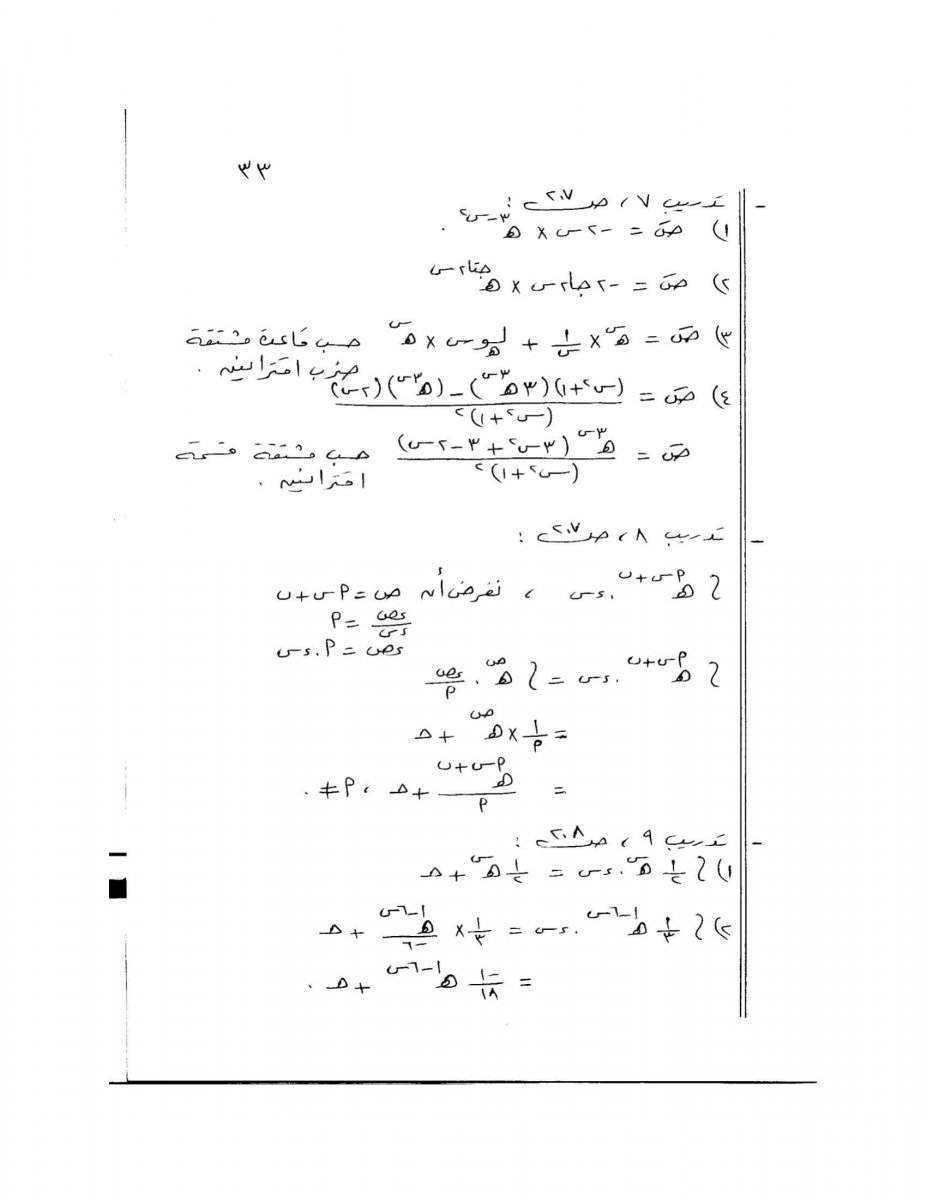 ٣٣
- تدريب ٧ ، ص ٢٠٧ :
١) صَ = -٢س × هـ^(٣-س٢) .
٢) صَ = -٢جا٢س × هـ^(جتا٢س)
٣) صَ = هـ^س × ١/س + لو_هـ س × هـ^س حسب قاعدة مشتقة
ضرب اقترانين .
٤) صَ = (س٢+١)(٣هـ^٣س) - (هـ^٣س)(٢س) / (س٢+١)٢
صَ = هـ^٣س (٣س٢+٣-٢س) / (س٢+١)٢ حسب مشتقة قسمة
اقترانين .
- تدريب ٨ ، ص ٢٠٧ :
∫ هـ^(أس+ب) . ءس ، نفرض أن ص = أس+ب
ءص/ءس = أ
ءص = أ . ءس
∫ هـ^(أس+ب) . ءس = ∫ هـ^ص . ءص/أ
= ١/أ × هـ^ص + جـ
= هـ^(أس+ب)/أ + جـ ، أ ≠ ٠
- تدريب ٩ ، ص ٢٠٨ :
١) ∫ ١/٢ هـ^س . ءس = ١/٢ هـ^س + جـ
٢) ∫ ١/٣ هـ^(١-٦س) . ءس = ١/٣ × هـ^(١-٦س)/-٦ + جـ
= -١/١٨ هـ^(١-٦س) + جـ .